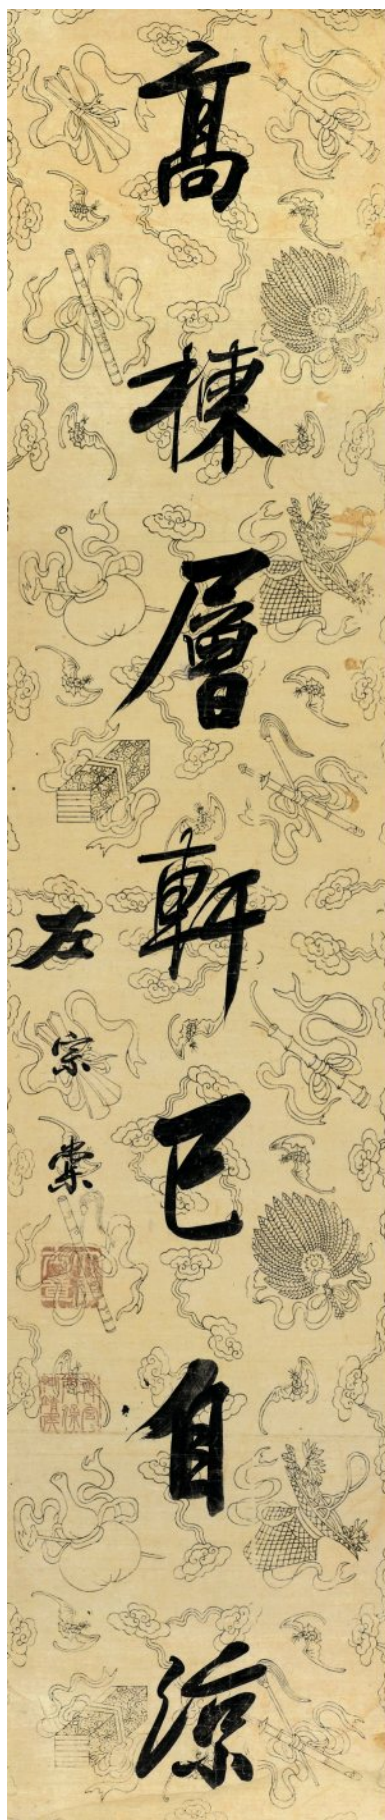 高棟層軒已自涼
左宗棠